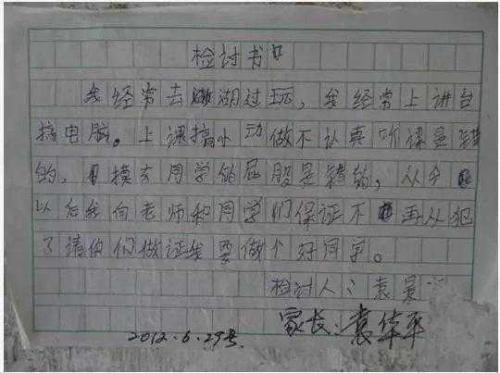 检讨书
我经常去湖过玩，我经常上讲台
搞电脑。上课搞小动做不认真听课是错
的，摸女同学的屁股是错的，从今
以后我向老师和同学们保证不再从犯
了请你们做证我要做个好同学。
检讨人：袁
家长：袁华平
2012.6.29号